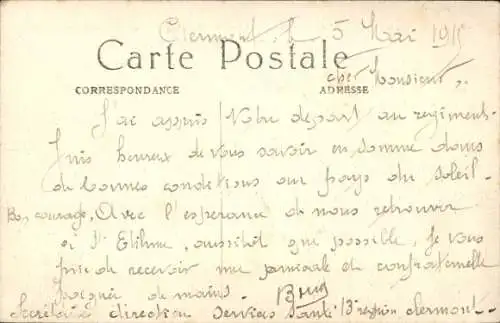 Clermont, le 5 Mai 1915
Carte Postale
CORRESPONDANCE
ADRESSE
cher Monsieur,
J'ai appris Votre depart au regiment.
Suis heureux de vous savoir en somme dans
de bonnes conditions au pays du soleil.
Bon courage, Avec l'esperance de nous retrouver
à St Etienne, aussitôt que possible, je vous
prie de recevoir une amicale et confraternelle
poignée de mains.
Secrétaire direction services santé 13e region Clermont